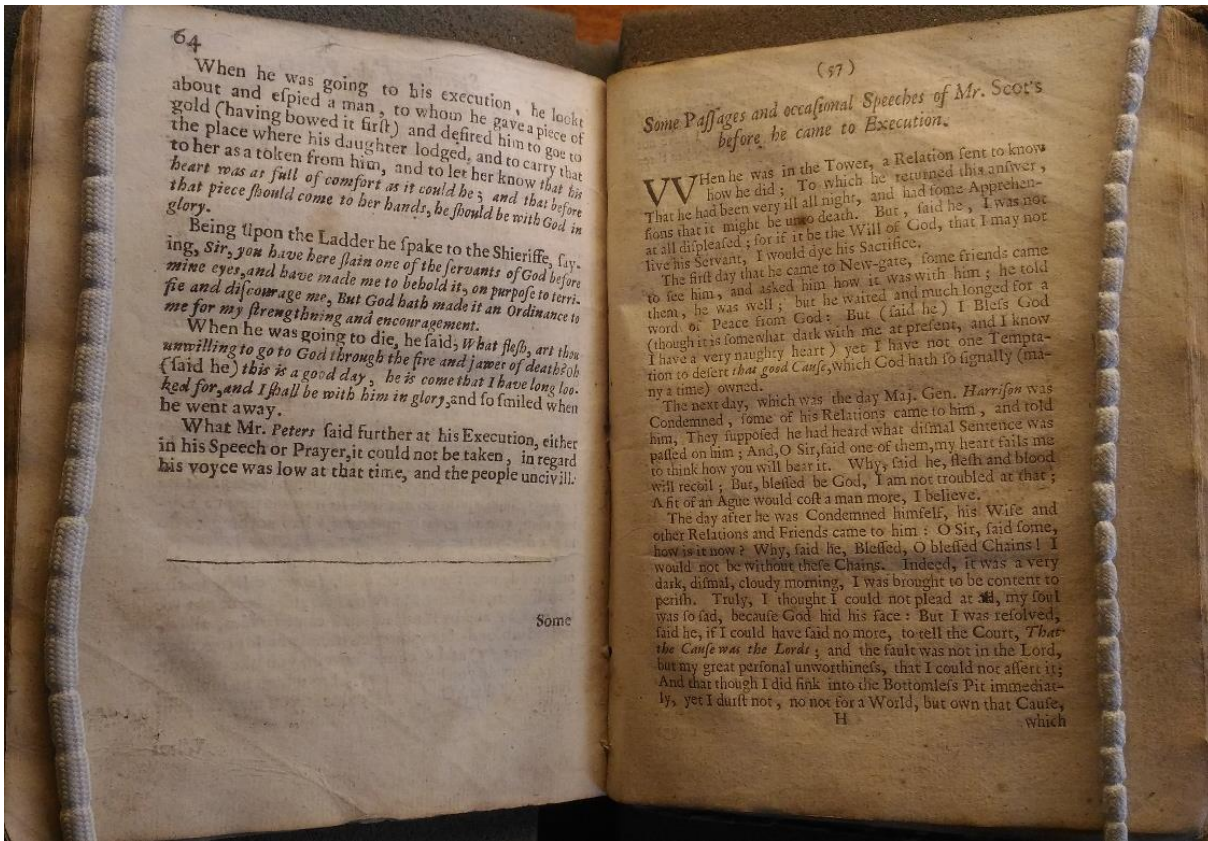 64
When he was going to his execution, he lookt
about and eſpied a man, to whom he gave a piece of
gold (having bowed it firſt) and deſired him to goe to
the place where his daughter lodged, and to carry that
to her as a token from him, and to let her know that his
heart was as full of comfort as it could be; and that before
that piece ſhould come to her hands, he ſhould be with God in
glory.
Being upon the Ladder he ſpake to the Shieriffe, ſay-
ing, Sir, you have here ſlain one of the ſervants of God before
mine eyes, and have made me to behold it, on purpoſe to terri-
fie and diſcourage me, But God hath made it an Ordinance to
me for my ſtrengthning and encouragement.
When he was going to die, he ſaid, What fleſh, art thou
unwilling to go to God through the fire and jawes of death? oh
(ſaid he) this is a good day, he is come that I have long loo-
ked for, and I ſhall be with him in glory, and ſo ſmiled when
he went away.
What Mr. Peters ſaid further at his Execution, either
in his Speech or Prayer, it could not be taken, in regard
his voyce was low at that time, and the people uncivill.
Some
(57)
Some Paſſages and occaſional Speeches of Mr. Scot's
before he came to Execution.
VVHen he was in the Tower, a Relation ſent to know
how he did; To which he returned this anſwer,
That he had been very ill all night, and had ſome Apprehen-
ſions that it might be unto death. But, ſaid he, I was not
at all diſpleaſed; for if it be the Will of God, that I may not
live his Servant, I would dye his Sacrifice.
The firſt day that he came to New-gate, ſome friends came
to ſee him, and asked him how it was with him; he told
them, he was well; but he waited and much longed for a
word of Peace from God: But (ſaid he) I Bleſs God
(though it is ſomewhat dark with me at preſent, and I know
I have a very naughty heart) yet I have not one Tempta-
tion to deſert that good Cauſe, which God hath ſo ſignally (ma-
ny a time) owned.
The next day, which was the day Maj. Gen. Harriſon was
Condemned, ſome of his Relations came to him, and told
him, They ſuppoſed he had heard what diſmal Sentence was
paſſed on him; And, O Sir, ſaid one of them, my heart fails me
to think how you will bear it. Why, ſaid he, fleſh and blood
will recoil; But, bleſſed be God, I am not troubled at that;
A fit of an Ague would coſt a man more, I believe.
The day after he was Condemned himſelf, his Wife and
other Relations and Friends came to him: O Sir, ſaid ſome,
how is it now? Why, ſaid he, Bleſſed, O bleſſed Chains! I
would not be without theſe Chains. Indeed, it was a very
dark, diſmal, cloudy morning, I was brought to be content to
periſh. Truly, I thought I could not plead at all, my ſoul
was ſo ſad, becauſe God hid his face: But I was reſolved,
ſaid he, if I could have ſaid no more, to tell the Court, That
the Cauſe was the Lords; and the fault was not in the Lord,
but my great perſonal unworthineſs, that I could not aſſert it;
And that though I did ſink into the Bottomleſs Pit immediat-
ly, yet I durſt not, no not for a World, but own that Cauſe,
H
which